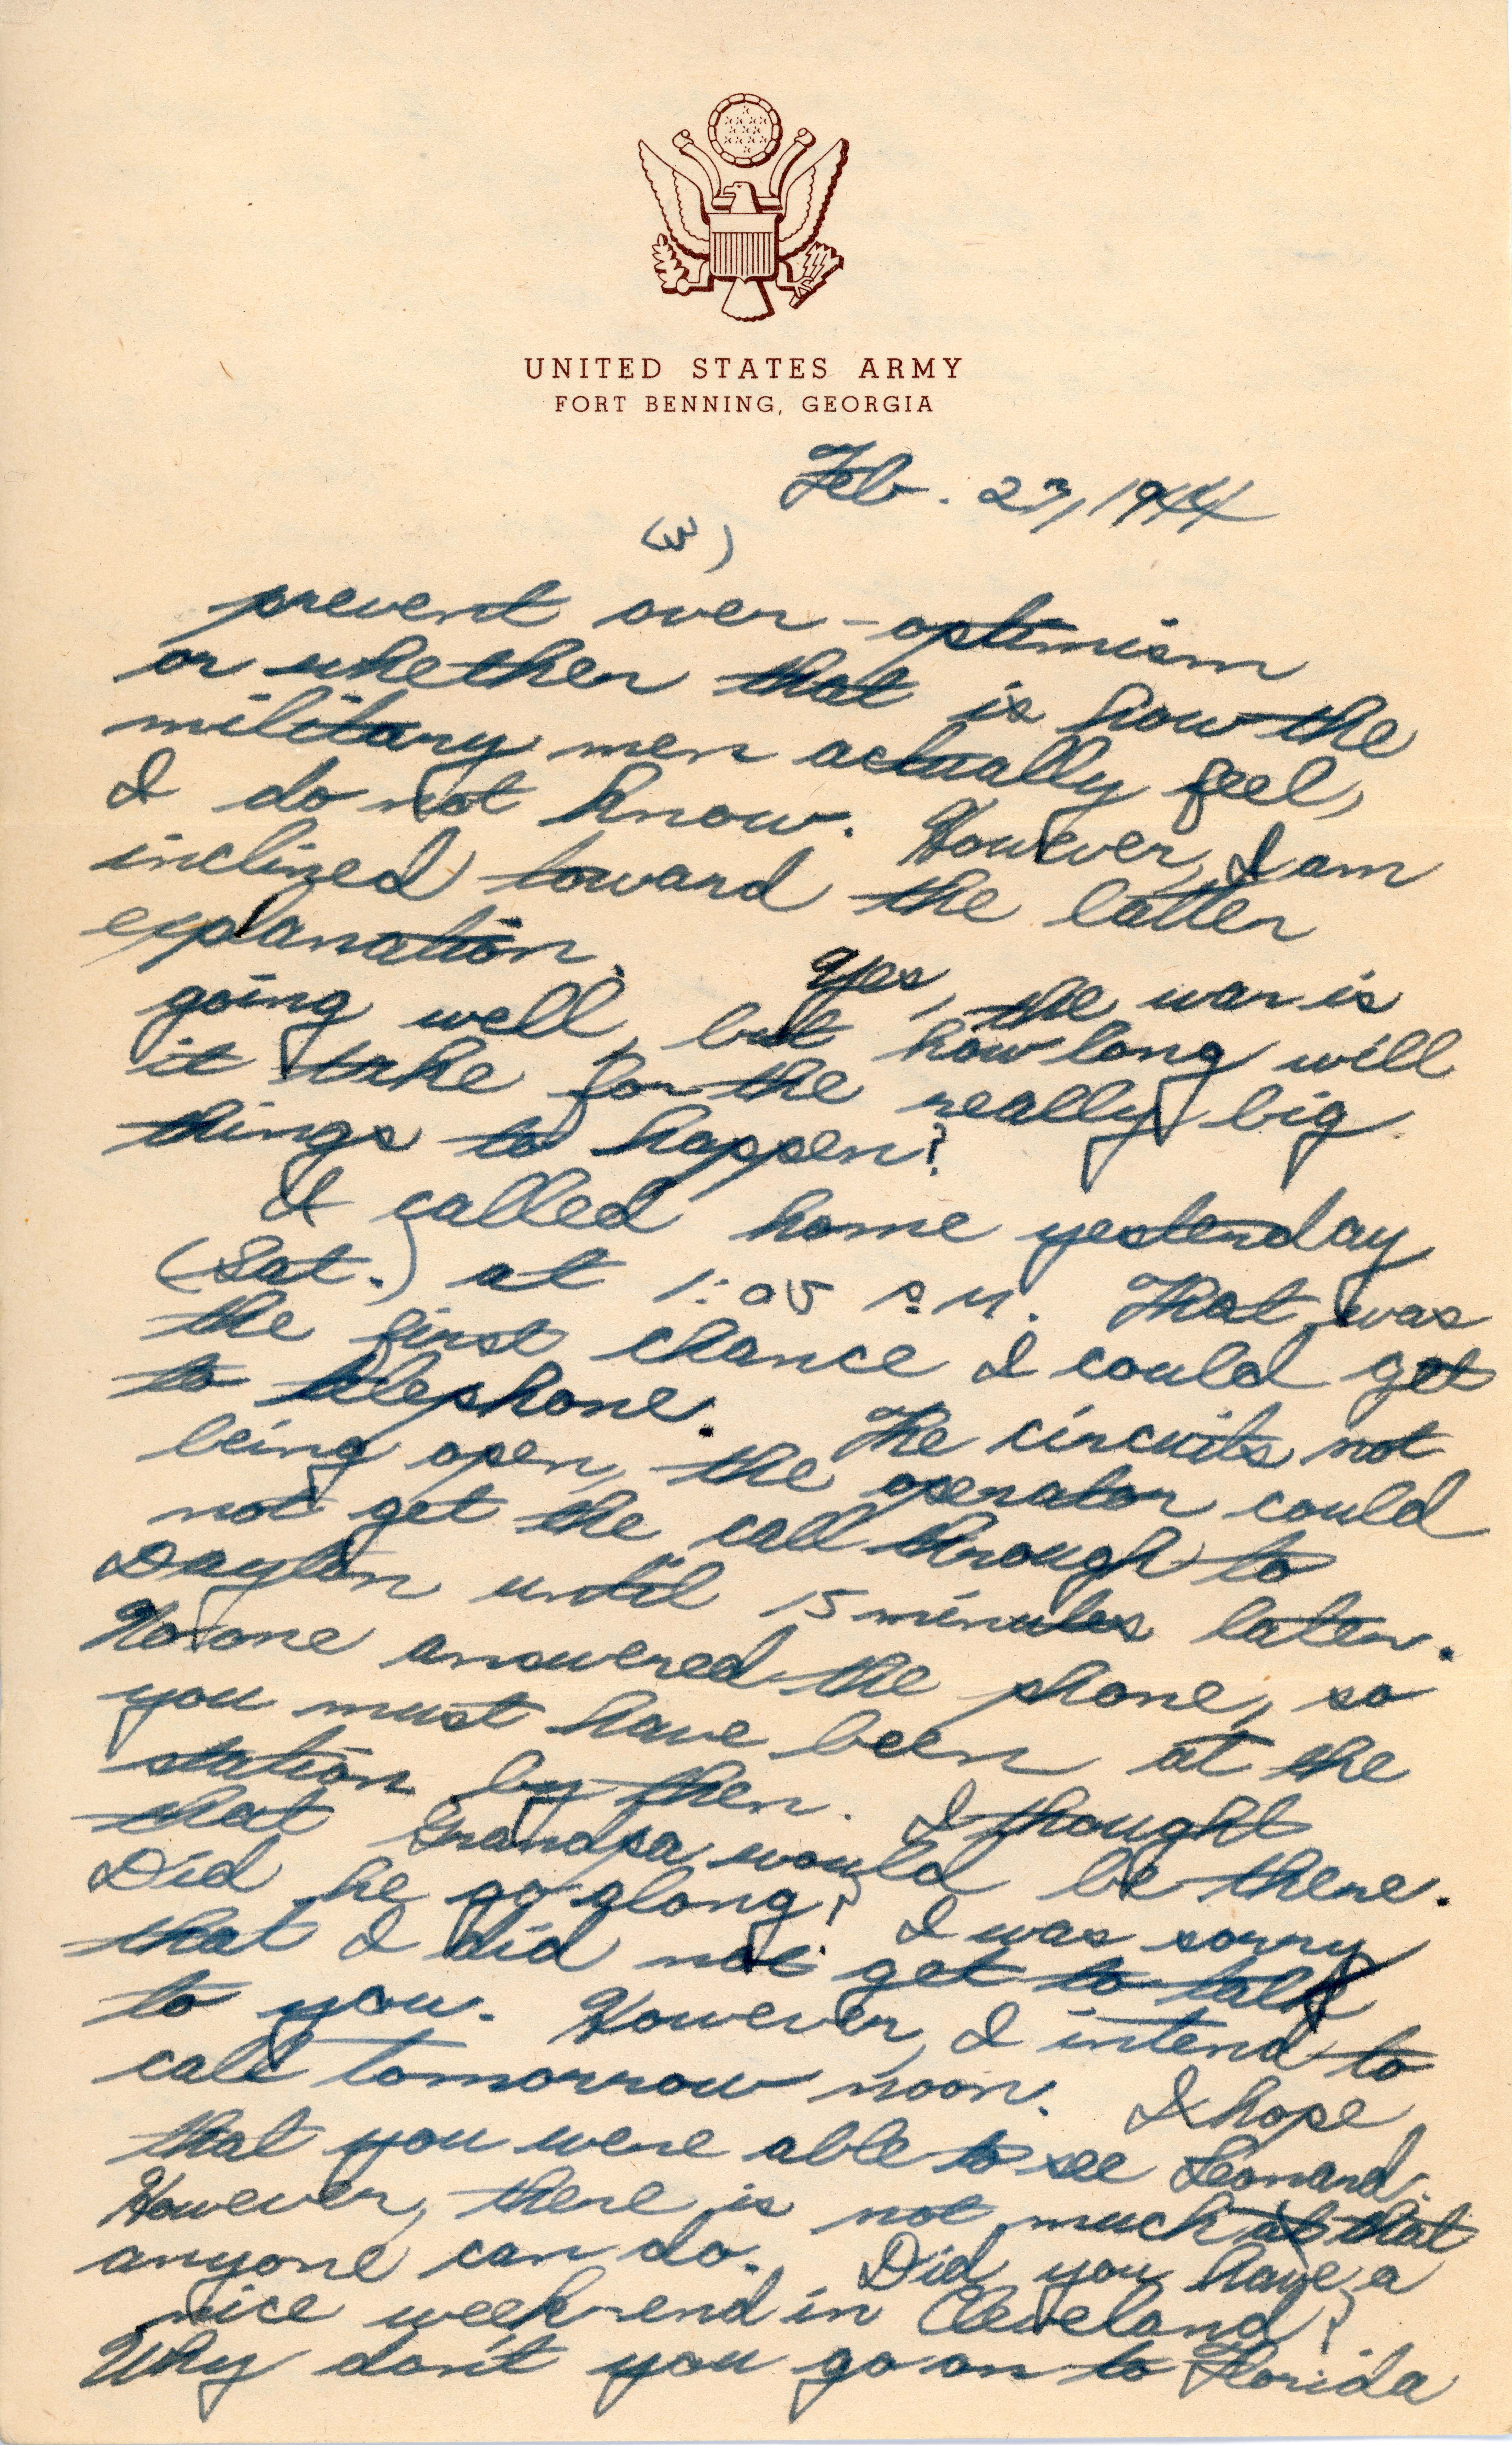 UNITED STATES ARMY
FORT BENNING, GEORGIA
Feb. 27, 1944
(3)
prevent over-optimism
or whether that is how the
military men actually feel,
I do not know. However, I am
inclined toward the latter
explanation. Yes, the war is
going well, but how long will
it take for the really big
things to happen?
I called home yesterday
(Sat.) at 1:05 P.M. That was
the first chance I could get
to telephone. The circuits not
being open, the operator could
not get the call through to
Dayton until 15 minutes later.
No one answered the phone, so
you must have been at the
station by then. I thought
that Grandpa would be there.
Did he go along? I was sorry
that I did not get to talk
to you. However, I intend to
call tomorrow noon. I hope
that you were able to see Leonard.
However, there is not much that
anyone can do. Did you have a
nice week-end in Cleveland?
Why don't you go on to Florida